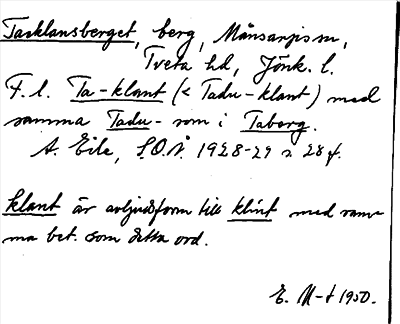 Tacklansberget, berg, Månsarps sn,
Tveta hd, Jönk. l.
F. l. Ta-klant (< Tadu-klant) med
samma Tadu- som i Taberg.
A. Eile, S.O.Å. 1928-29 s. 28 f.
klant är avljudsform till klint med sam-
ma bet. som detta ord.
E. M-t 1950.